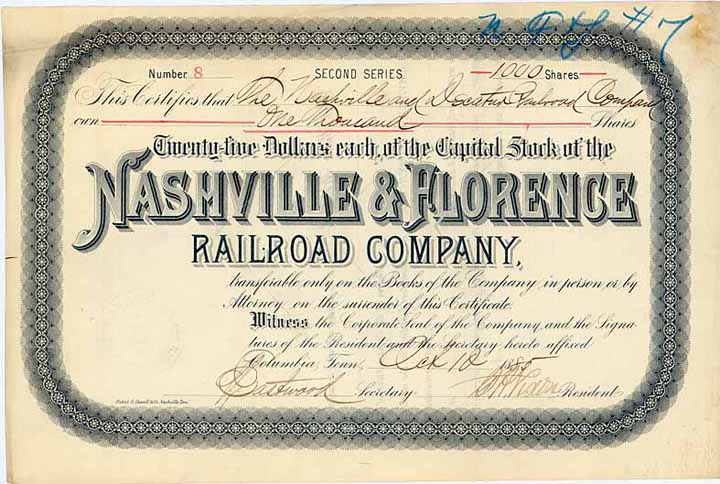 # 7
Number 8 SECOND SERIES 1000 Shares
This Certifies that The Nashville and Decatur Railroad Company
own One Thousand Shares
Twenty-five Dollars each, of the Capital Stock of the
NASHVILLE & FLORENCE
RAILROAD COMPANY,
transferable only on the Books of the Company, in person or by
Attorney on the surrender of this Certificate.
Witness the Corporate Seal of the Company, and the Signa-
tures of the President and the Secretary hereto affixed
Columbia, Tenn., Oct 10 1885
Eastwood Secretary President